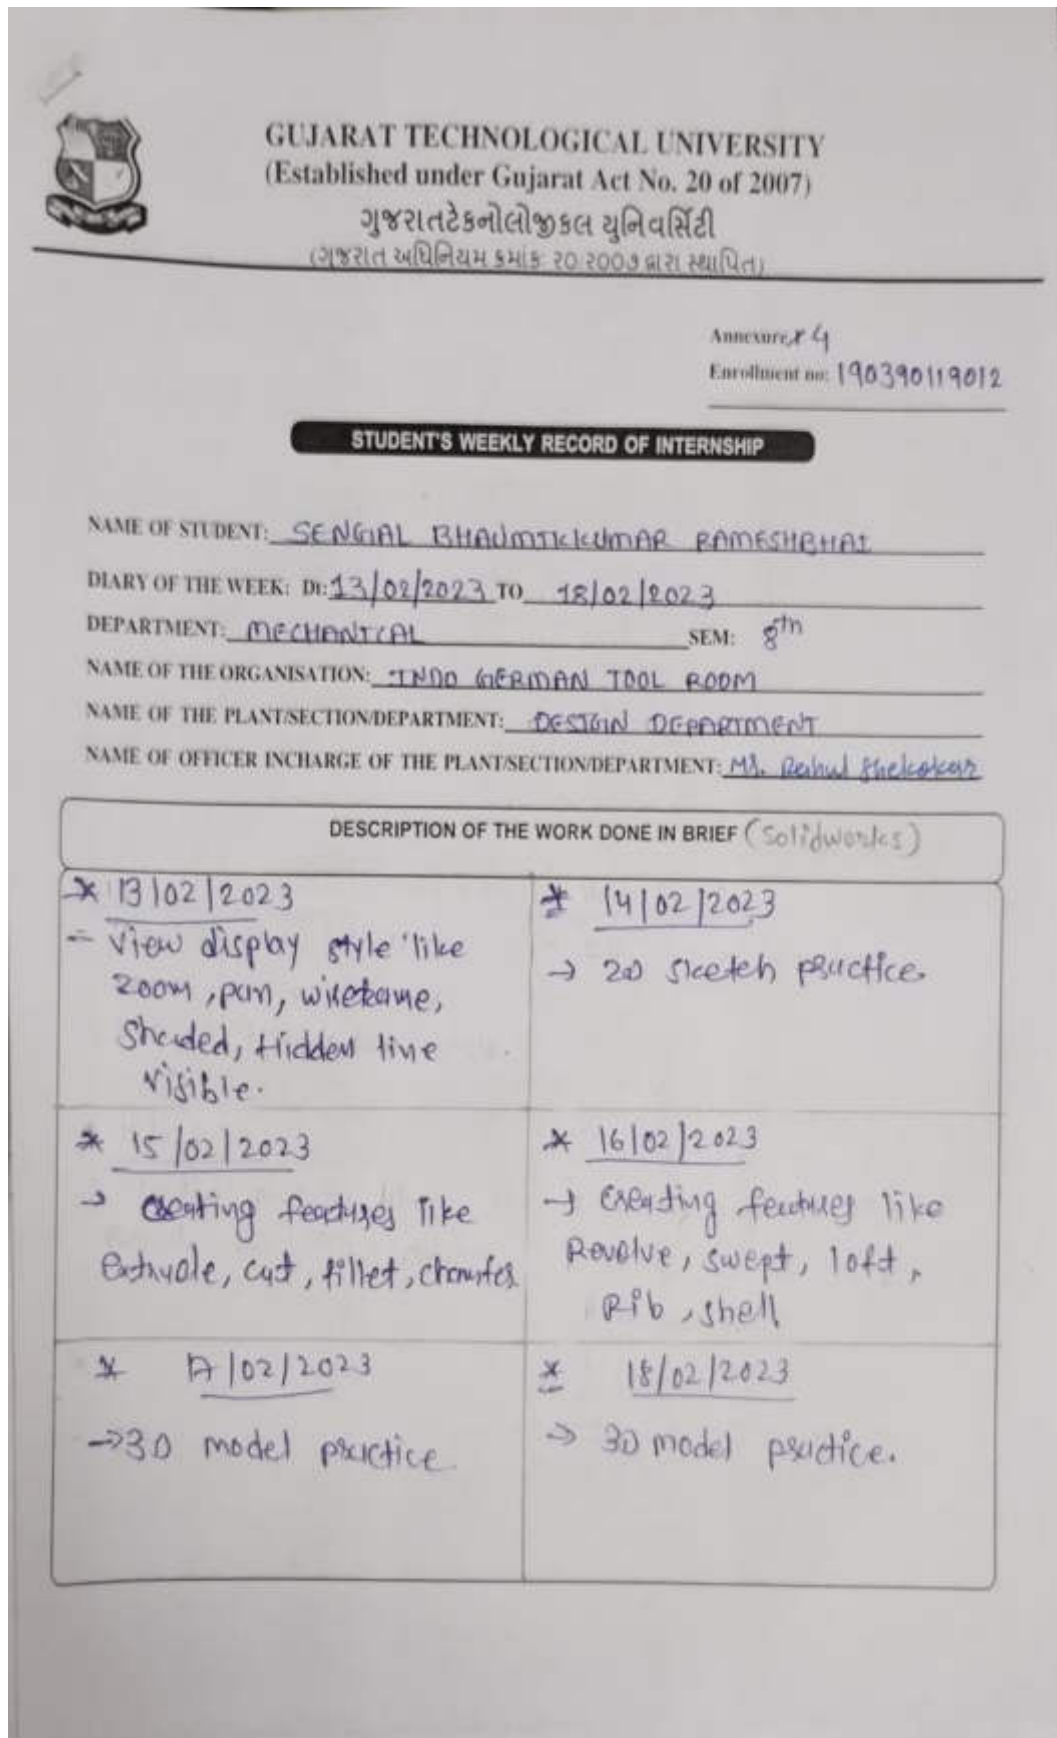 GUJARAT TECHNOLOGICAL UNIVERSITY
(Established under Gujarat Act No. 20 of 2007)
ગુજરાતટેકનોલોજીકલ યુનિવર્સિટી
(ગુજરાત અધિનિયમ ક્રમાંક ૨૦ ૨૦૦૭ દ્વારા સ્થાપિત)
Annexure 4
Enrollment no: 190390119012
STUDENT'S WEEKLY RECORD OF INTERNSHIP
NAME OF STUDENT: SENGAL BHAUMIKKUMAR RAMESHBHAI
DIARY OF THE WEEK: Dt: 13/02/2023 TO 18/02/2023
DEPARTMENT: MECHANICAL SEM: 8th
NAME OF THE ORGANISATION: INDO GERMAN TOOL ROOM
NAME OF THE PLANT/SECTION/DEPARTMENT: DESIGN DEPARTMENT
NAME OF OFFICER INCHARGE OF THE PLANT/SECTION/DEPARTMENT: Mr. Rahul Shekokar
DESCRIPTION OF THE WORK DONE IN BRIEF (Solidworks)
* 13/02/2023
- View display style like
zoom, pan, wireframe,
Shaded, Hidden line
visible.
* 14/02/2023
→ 2D sketch practice.
* 15/02/2023
→ Creating features like
extrude, cut, fillet, chamfer
* 16/02/2023
→ Creating features like
Revolve, swept, loft,
Rib, shell
* 17/02/2023
→ 3D model practice
* 18/02/2023
→ 3D model practice.